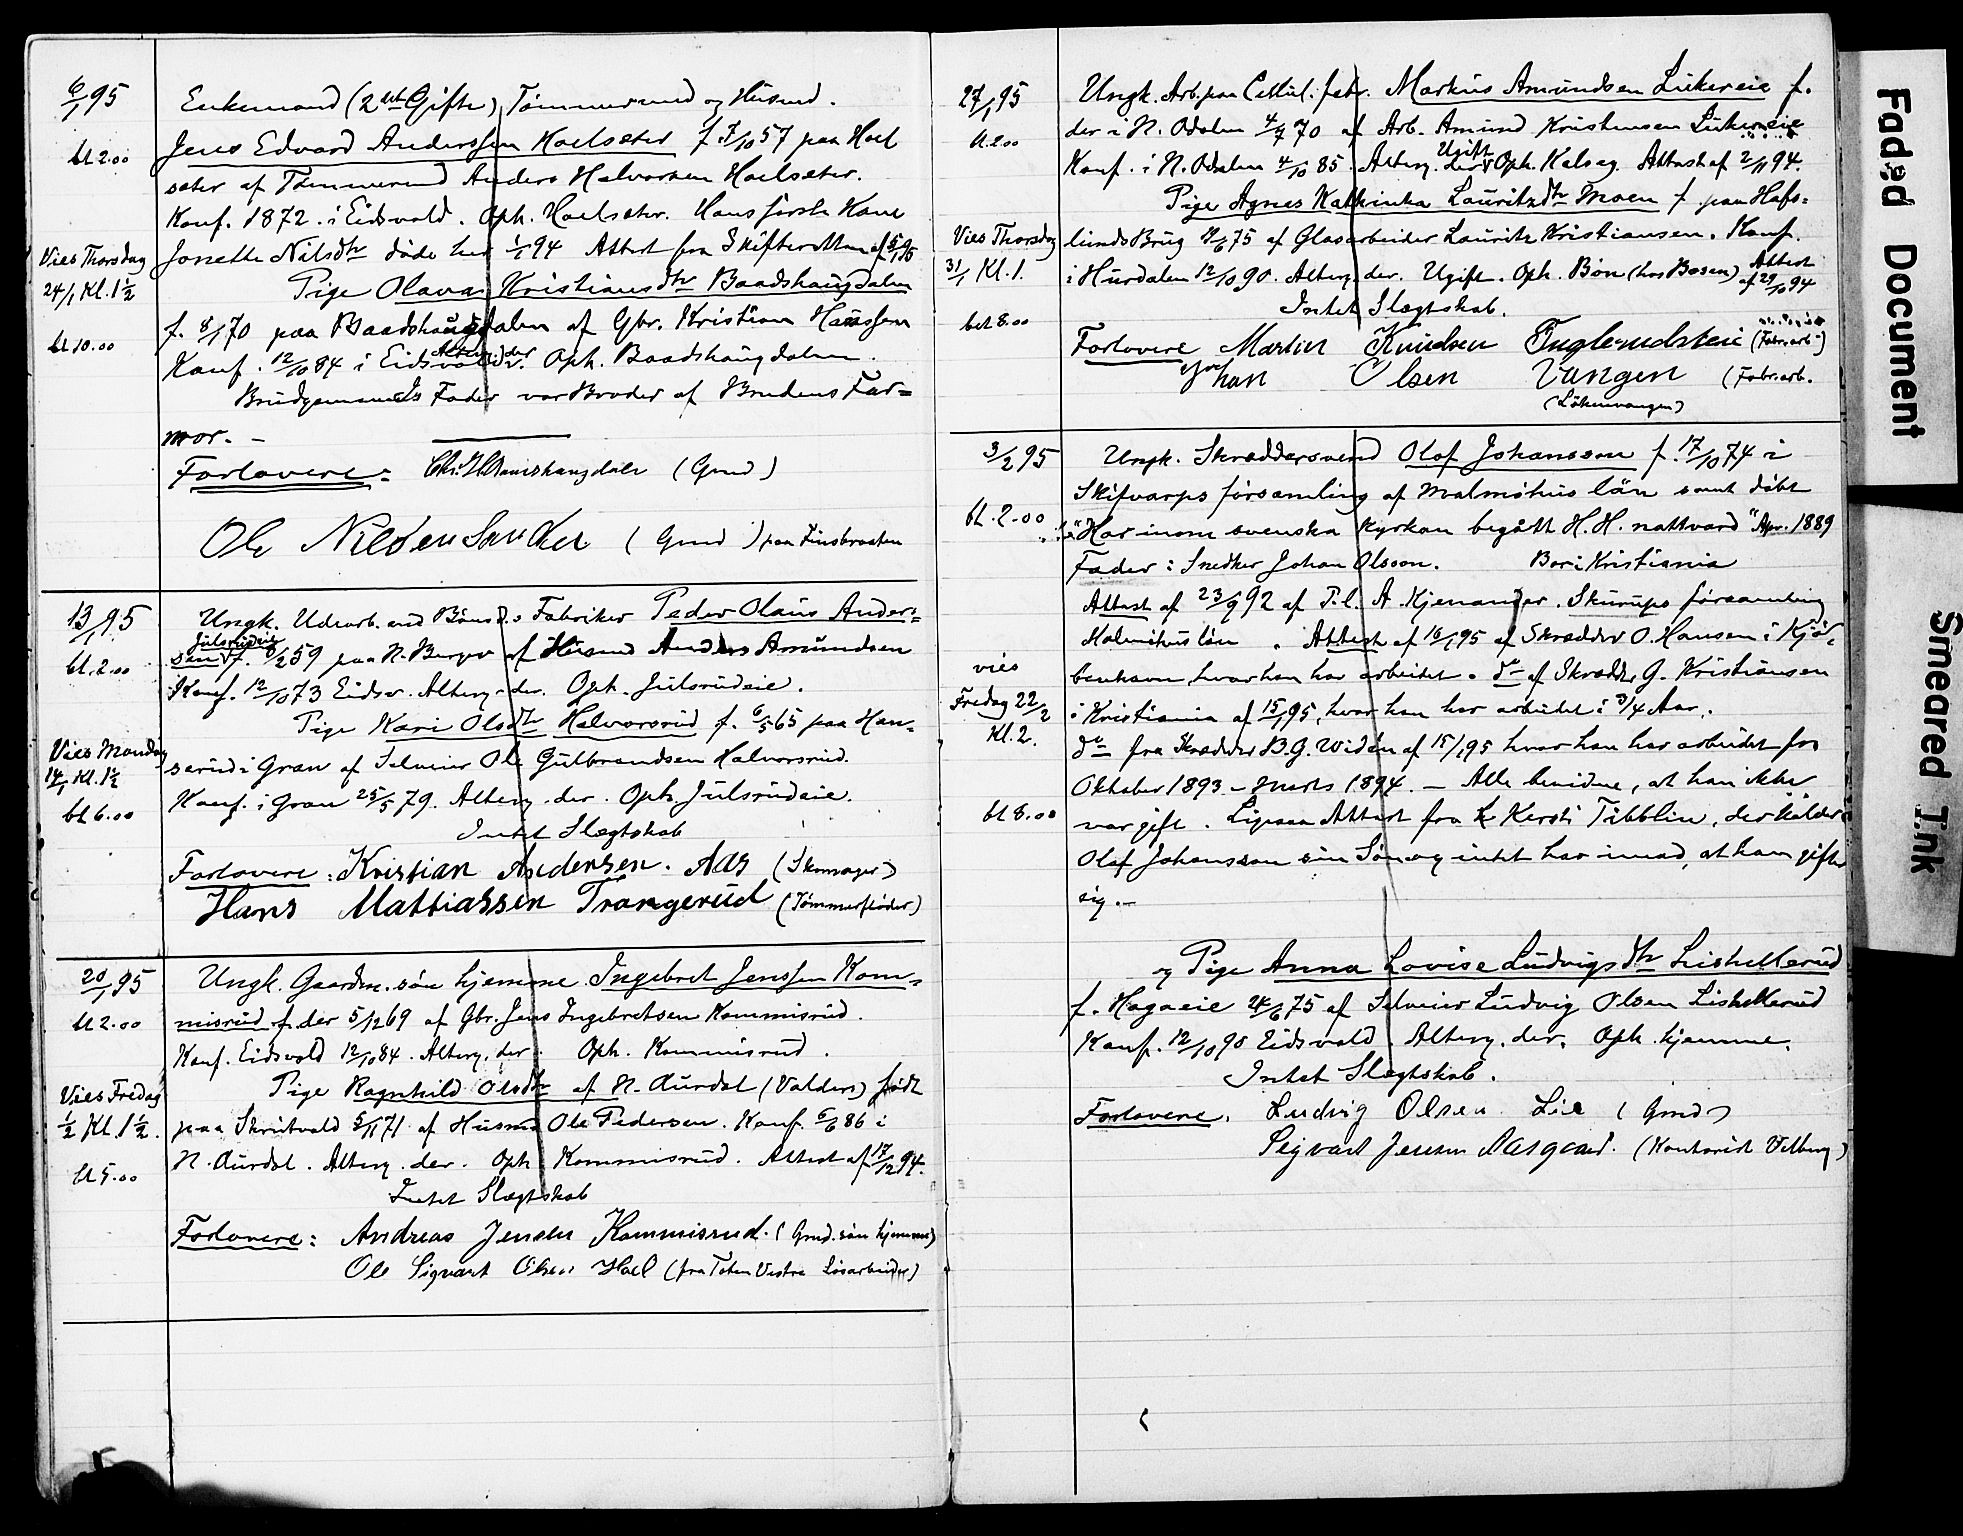 6/1 95
Enkemand (2det Gifte) Tømmermd og Husmd.
bt 2.00
Jens Edvard Anderssen Hoelseter f. 7/10 57 paa Hoel
seter af Tømmermd Anders Halvorsen Hoelseter.
Konf. 1872 i Eidsvold. Oph. Hoelseter. Hans første Kone
Vies Thorsdag
24/1 Kl. 1½
Jonette Nilsdtr døde her 1/1 94 Attest fra Skifteretten af 5/1 95
Pige Olava Kristiansdtr Baadshaugdalen
bt 10.00
f. 8/1 70 paa Baadshaugdalen af Gbr. Kristian Hanssen
Konf. 12/10 84 i Eidsvold. Alterg. der. Oph. Baadshaugdalen.
Brudgommens Fader var Broder af Brudens Far=
mor. —
Forlovere: (Gmd)
Ole Nilsen (Gmd) paa Finsbraaten
13/1 95
Ungk. Udearb. ved Bøns Fabriker Peder Olaus Ander=
bt. 2.00
sen Julsrudeie f. 8/2 59 paa N. Berger af Husmd Anders Amundsen
Konf. 12/10 73 Eidsv. Alterg. der. Oph. Julsrudeie.
Pige Kari Olsdtr Halvorsrud f. 6/5 65 paa Han=
Vies Mandag
14/1 Kl. 1½
serud i Gran af Selveier Ole Gulbrandsen Halvorsrud.
bt 6.00
Konf. i Gran 25/5 79. Alterg. der. Oph. Julsrudeie.
Intet Slægtskab
Forlovere: Kristian Andersen. Aas (Skomager)
Hans Mattiassen Trangerud (Tømmerfløder)
20/1 95
Ungk. Gaardm. søn hjemme Ingebret Jenssen Kom=
bt 2.00
misrud f. der 5/12 69 af Gbr. Jens Ingebretsen Kommisrud.
Konf. Eidsvold 12/10 84. Alterg. der. Oph. Kommisrud.
Vies Fredag
1/2 Kl. 1½.
Pige Ragnhild Olsdtr af N. Aurdal (Valders) født
paa Skrutvold 5/11 71 af Husmd Ole Pedersen. Konf. 6/6 86 i
bt 5.00
N. Aurdal. Alterg. der. Oph. Kommisrud. Attest af 17/12 94.
Intet Slægtskab
Forlovere: Andreas Jensen Kommisrud. (Gmd. søn hjemme)
Ole Sigvart Olsen Hoel (fra Toten Vestre Løsarbeider)
27/1 95
Ungk. Arb. paa Cellul. fabr. Markus Amundsen Lükereie f.
der i N. Odalen 4/7 70 af Arb. Amund Kristensen Lükereie
Konf. i N. Odalen 4/10 85. Alterg. der Ugift Oph. Attest af 2/11 94.
Pige Agnes Kathinka Lauritzdtr Moen f. paa Hafs=
Vies Thorsdag
31/1 Kl. 1.
lunds Brug 75 af Glasarbeider Lauritz Kristiansen. Konf.
i Hurdalen 12/10 90. Alterg. der. Ugift. Oph. Bøn (hos Bøsen) Attest af 29/10 94
Intet Slægtskab.
bet 8.00
Forlovere Martin Knudsen (Fabr.arb.)
Johan Olsen Vangen (Fabr.arb.
(Løkenvangen)
3/2 95
Ungk. Skræddersvend Olof Johansson f. 17/10 74 i
Skifvarps församling af Malmöhus län samt döbt
bt. 2.00
"Har inom svenska kyrkan begått H. H. nattvard" Apr. 1889
Fader: Snedker Johan Olsson. Bor i Kristiania
Attest af 23/9 92 af P. l. A. Kjenander. Skurups församling
Malmöhus län. Attest af 16/1 95 af Skrædder O. Hansen i Kjø=
vies
benhavn, hvor han har arbeidet. do af Skrædder G. Kristiansen
Fredag 22/2
Kl. 2.
i Kristiania af 15/1 95, hvor han har arbeidet i 3/4 Aar.
do fra Skrædder B. G. Widén af 15/1 95 hvor han har arbeidet fra
Oktober 1893 – Marts 1894. — Alle bevidne, at han ikke
bt 8.00
var gift. Ligesaa Attest fra Kersti Tibblin, der kalder
Olof Johansson sin Søn og intet har imod, at han gifter
sig. —
og Pige Anna Lovise Ludvigsdtr Liskellerud
f. Hagaeie 24/6 75 af Selveier Ludvig Olsen Liskellerud
Konf. 12/10 90 Eidsvold. Alterg. der. Oph. hjemme.
Intet Slægtskab.
Forlovere. Ludvig Olsen Lie (Gmd)
Sigvart Jensen Aasgaard. (Kontorist Vilberg)
Faded Document
Smeared Ink